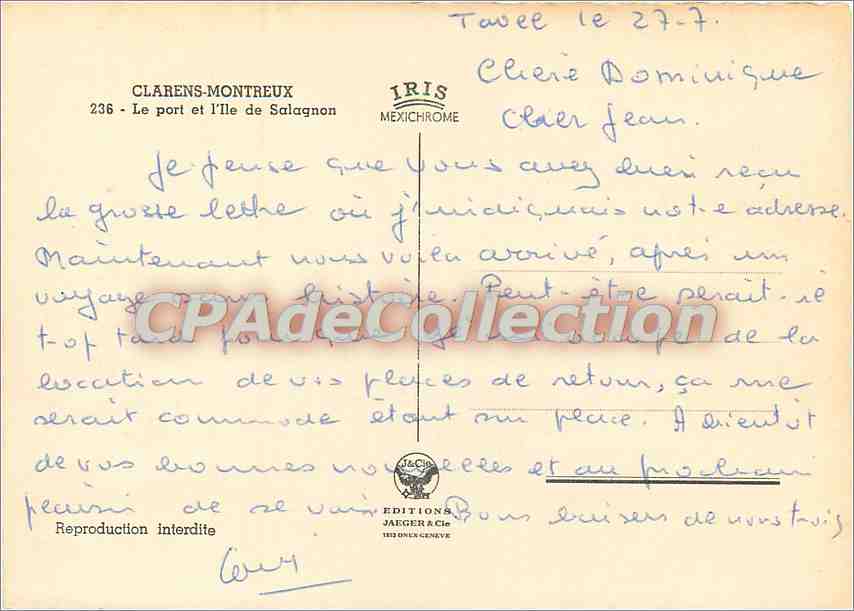 Tavel le 27-7.
CLARENS-MONTREUX
236 - Le port et l'Ile de Salagnon
IRIS
MEXICHROME
Chère Dominique
Cher Jean.
Je pense que vous avez bien reçu
la grosse lettre où j'indiquais notre adresse.
Maintenant nous voilà arrivé, après un
voyage sans histoire. Peut-être serait-il
trop tard pour que je m'occupe de la
CPAdeCollection
location de vos places de retour, ça me
serait commode étant sur place. A bientôt
de vos bonnes nouvelles et au prochain
plaisir de se voir. Bons baisers de nous trois
J&Cie
EDITIONS
JAEGER & Cie
1213 ONEX-GENEVE
Reproduction interdite